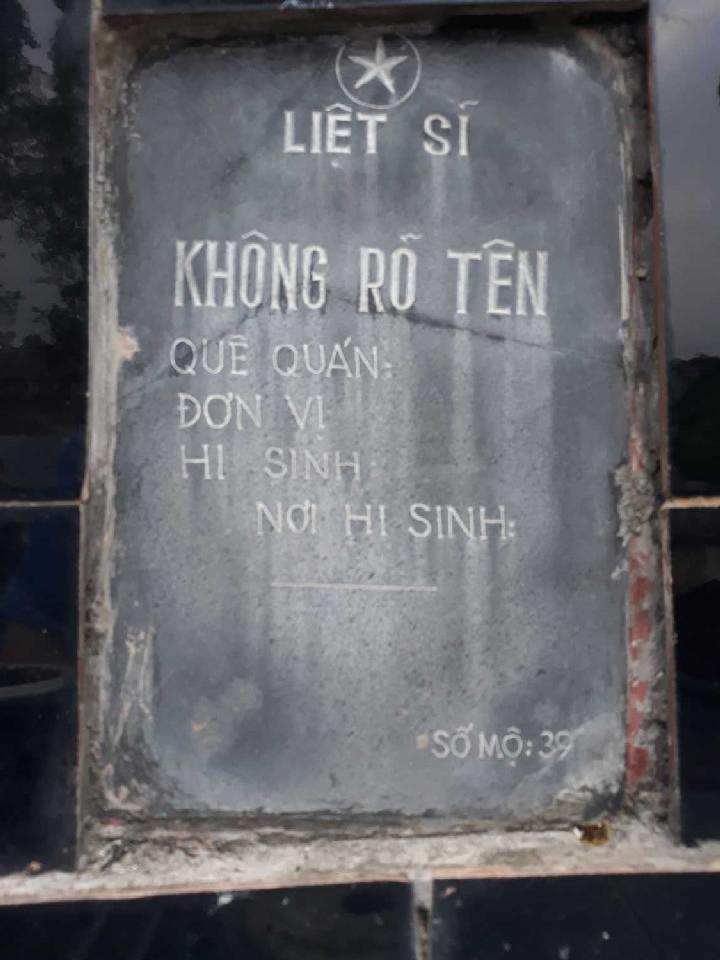 LIỆT SĨ
KHÔNG RÕ TÊN
QUÊ QUÁN:
ĐƠN VỊ
HI SINH
NƠI HI SINH:
SỐ MỘ: 39